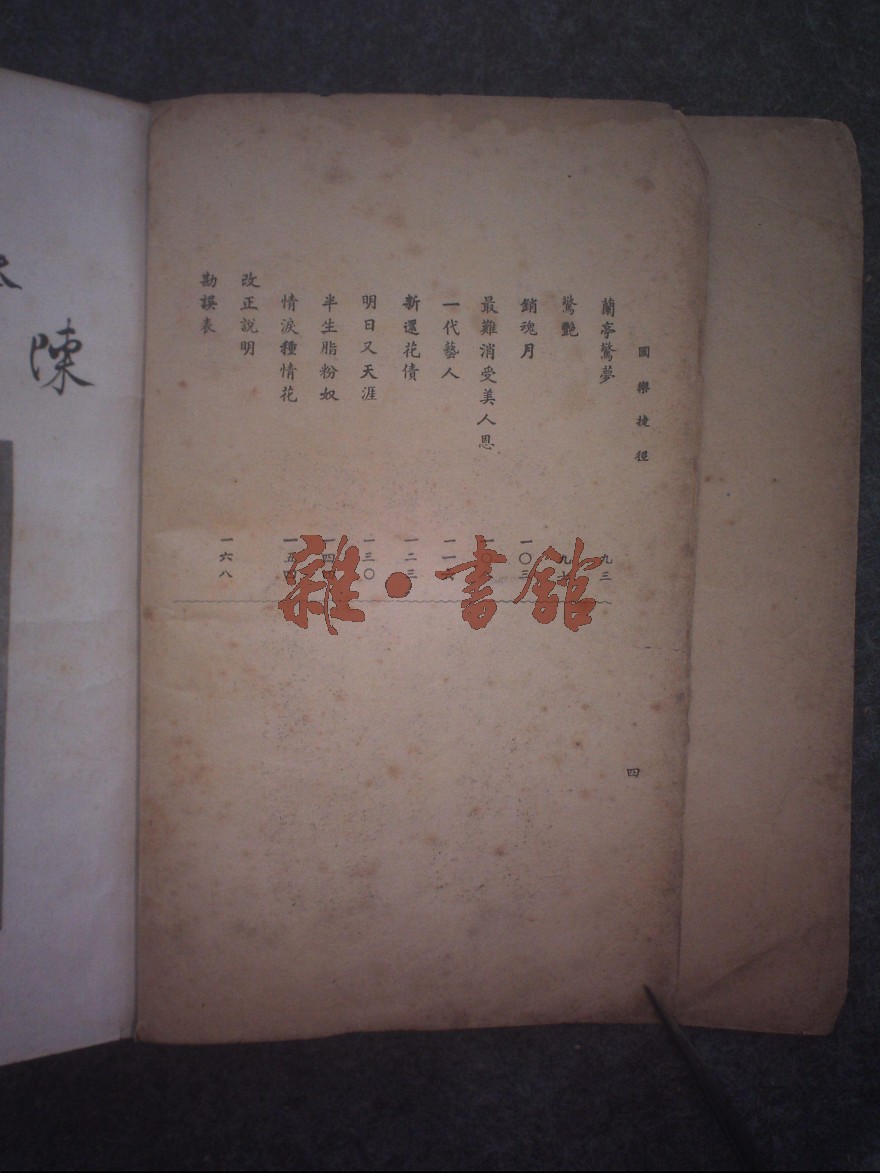 國樂捷徑
蘭亭驚夢 九三
驚艷
銷魂月 一〇三
最難消受美人恩
一代藝人
新還花債 一二三
明日又天涯 一三〇
半生脂粉奴
情淚種情花
改正說明
勘誤表 一六八
四
陳
雜·書館